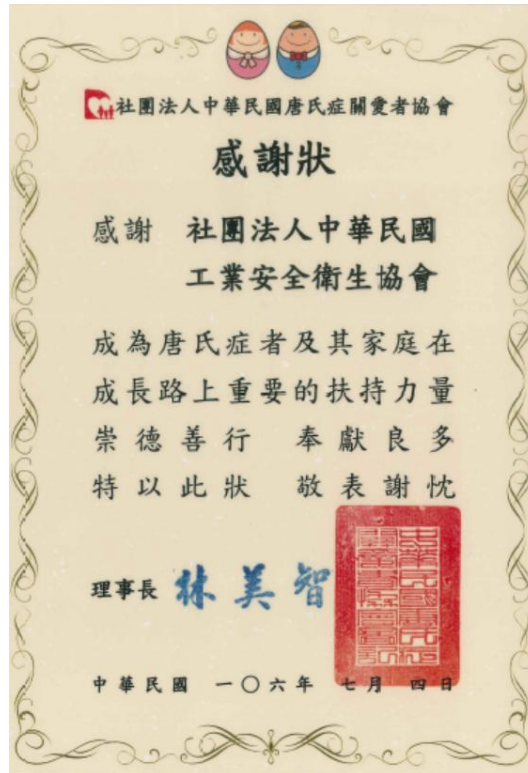 社團法人中華民國唐氏症關愛者協會
感謝狀
感謝 社團法人中華民國
工業安全衛生協會
成為唐氏症者及其家庭在
成長路上重要的扶持力量
崇德善行 奉獻良多
特以此狀 敬表謝忱
理事長 林美智
中華民國 一〇六年 七月 四日